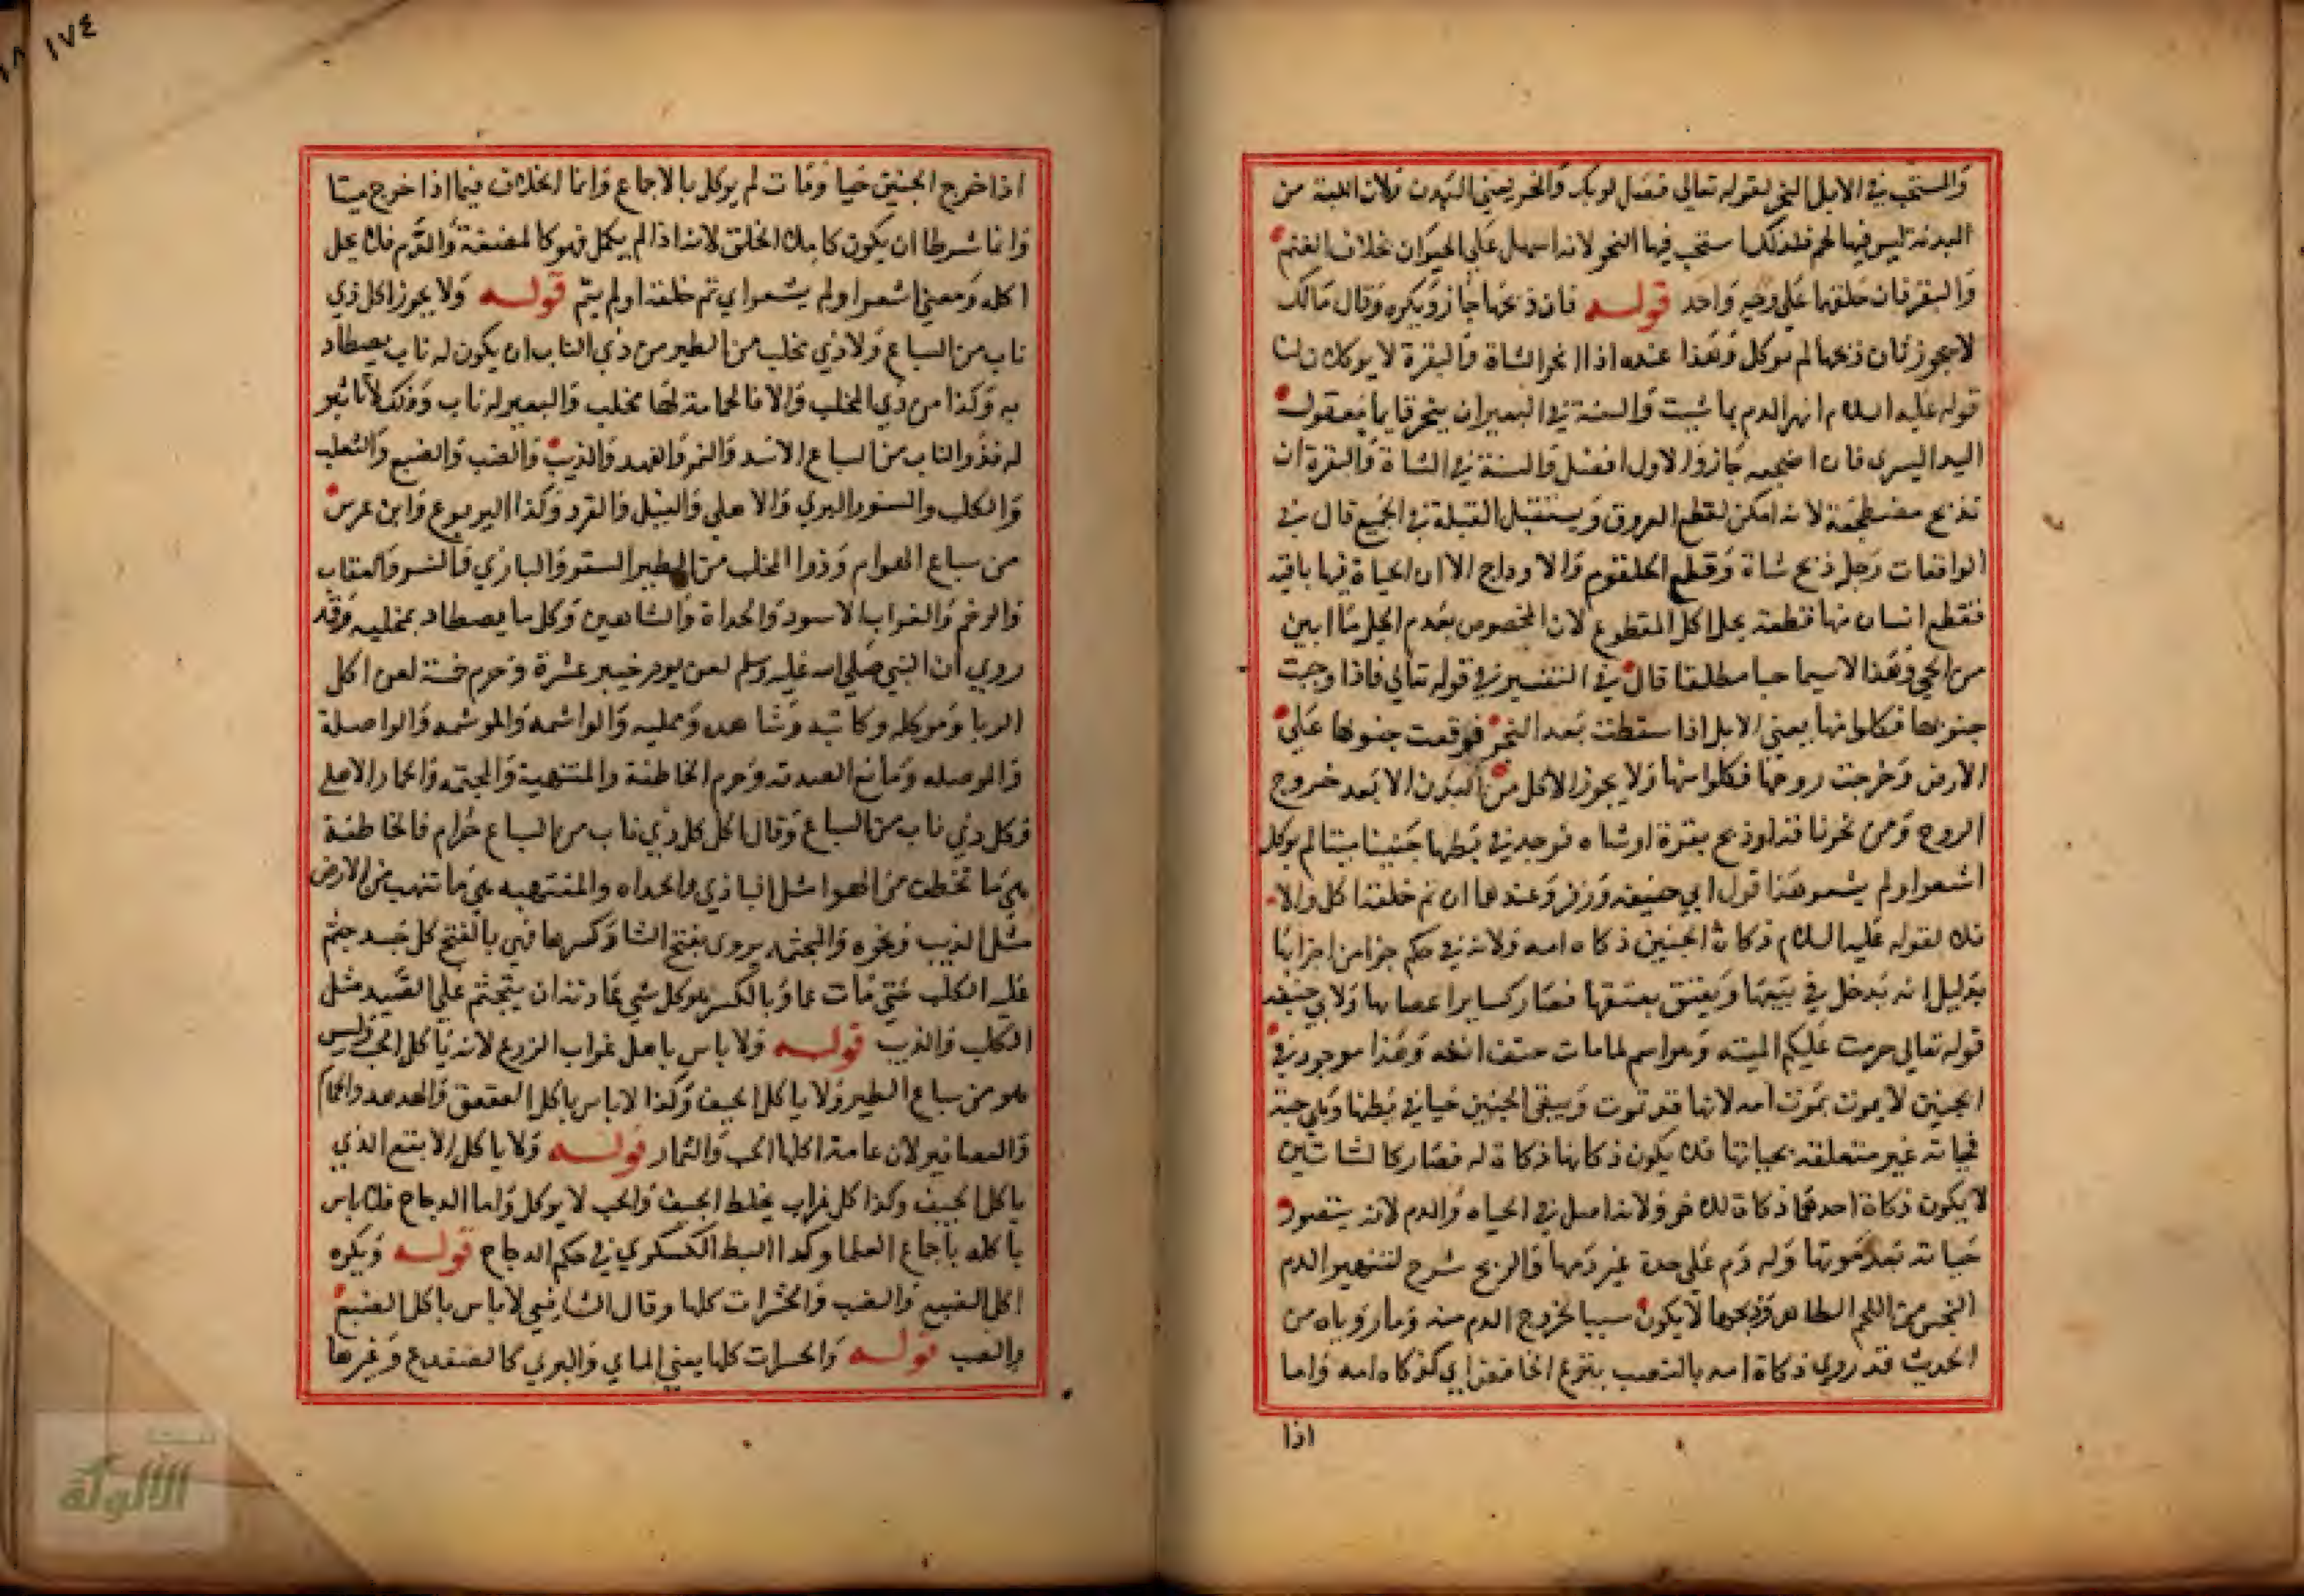 والمستحب في الابل النحر لقوله تعالى فصل لربك وانحر يعني البدن ولان اللبة من
البدنة ليس فيها لحم فلذلك استحب فيها النحر لانه اسهل على الحيوان بخلاف الغنم
والبقر فان حلقها على وجه واحد قوله فان ذبحها جاز ويكره وقال مالك
لا يجوز فان ذبحها لم يوكل وهذا عنده اذا نحر الشاة والبقرة لا يوكلان لنا
قوله عليه السلام انهر الدم بما شيت والسنة في البعير ان ينحر قايما معقول
اليد اليسرى فان اضجعه جاز والاول افضل والسنة في الشاة والبقرة ان
تذبح مضطجعة لانه امكن لقطع العروق ويستقبل القبلة في الجميع قال في
الواقعات رجل ذبح شاة وقطع الحلقوم والاوداج الا ان الحياة فيها باقية
فقطع انسان منها قطعة يحل اكل المقطوع لان المخصوص بعدم الحل ما ابين
من الحي وهذا لا يسمى حيا مطلقا قال في التفسير في قوله تعالى فاذا وجبت
جنوبها فكلوا منها يعني الابل اذا سقطت بعد النحر فوقعت جنوبها على
الارض وخرجت روحها فكلوا منها ولا يجوز الاكل من البدن الا بعد خروج
الروح ومن نحر ناقة او ذبح بقرة او شاه فوجد في بطنها جنينا ميتا لم يوكل
اشعر او لم يشعر وهذا قول ابي حنيفه وزفر وعندهما ان تم خلقه اكل والا
فلا لقوله عليه السلام ذكاة الجنين ذكاه امه ولانه في حكم جزا من اجزايها
بدليل انه يدخل في بيعها ويعتق بعتقها فصار كساير اعضايها ولابي حنيفه
قوله تعالى حرمت عليكم الميته وهو اسم لما مات حتف انفه وهذا موجود في
الجنين لا يموت بموت امه لانها قد تموت ويبقى الجنين حيا في بطنها وهي حية
فحياته غير متعلقه بحياتها فلا يكون ذكاتها ذكاة له فصار كالشاتين
لا يكون ذكاة احدهما ذكاة للاخر ولانه اصل في الحياه والدم لانه يتصور
حياته بعد موتها وله دم على حدة غير دمها والذبح شرح لتنهير الدم
النجس من اللحم الطاهر وذبحها لا يكون سببا لخروج الدم منه وما روياه من
الحديث فقد روي ذكاة امه بالنصب بنزع الخافض اي كذكاه امه واما
اذا
١٧٤
اذا خرج الجنين حيا ومات لم يوكل بالاجماع وانما الخلاف فيما اذا خرج ميتا
وانما شرطا ان يكون كامل الخلق لانه اذا لم يكمل فهو كالمضغة والدم فلا يحل
اكله ومعنى اشعر او لم يشعر اي تم خلقه او لم يتم قوله ولا يجوز اكل ذي
ناب من السباع ولا ذي مخلب من الطير من ذي الناب ان يكون له ناب يصطاد
به وكذا من ذي المخلب والا فالحمامة لها مخلب والبعير له ناب وذلك لا تاثير
له فذو الناب من السباع الاسد والنمر والفهد والذيب والضب والضبع والثعلب
والكلب والسنور البري والاهلي والفيل والقرد وكذا اليربوع وابن عرس
من سباع الهوام وذوا المخلب من الطير الصقر والبازي والنسر والعقاب
والرخم والغراب الاسود والحداة والشاهين وكل ما يصطاد بمخلبه وقد
روي ان النبي صلى الله عليه وسلم لعن يوم خيبر عشرة وحرم خمسة لعن اكل
الربا وموكله وكاتبه وشاهده ومحليه والواشمه والموشمه والواصلة
والموصله ومانع الصدقه وحرم الخاطفة والمنتهبة والمجثمه والحمار الاهلي
وكل ذي ناب من السباع وقال اكل كل ذي ناب من السباع حرام فالخاطفة
هي ما تخطف من الهوا مثل البازي والحداه والمنتهبه هي ما تنهب من الارض
مثل الذيب ونحوه والمجثمه يروى بفتح الثا وكسرها فهي بالفتح كل صيد جثم
عليه الكلب حتى مات غما وبالكسر هو كل شي عادته ان يتجثم على الصيد مثل
الكلب والذيب قوله ولا باس باكل غراب الزرع لانه ياكل الحب وليس
هو من سباع الطير ولا ياكل الجيف وكذا لا باس باكل العقعق والهدهد والحمام
والعصافير لان عامة اكلها الحب والثمار قوله ولا ياكل الابقع الذي
ياكل الجيف وكذا كل غراب يخلط الجيف والحب لا يوكل واما الدجاج فلا باس
باكله باجماع العلما وكذا البط الكسكري في حكم الدجاج قوله ويكره
اكل الضبع والضب والحشرات كلها وقال الشافعي لا باس باكل الضبع
والضب قوله والحشرات كلها يعني المايي والبري كالضفدع وغيرها
الألوكة